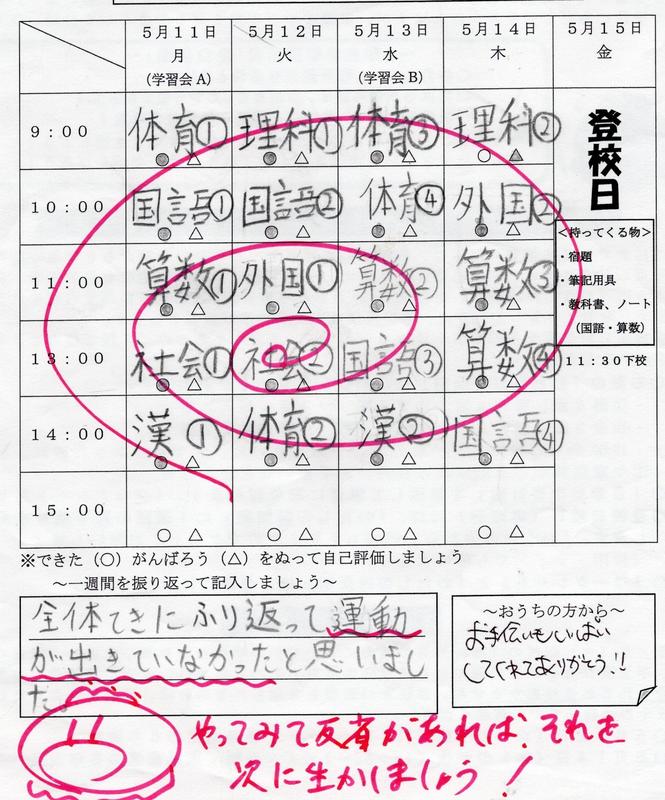 5月11日 5月12日 5月13日 5月14日 5月15日
月 火 水 木 金
(学習会A) (学習会B)
9:00 体育① 理科① 体育③ 理科②
○ △ ○ △ ○ △ ○ △
登校日
10:00 国語① 国語② 体育④ 外国②
○ △ ○ △ ○ △ ○ △
<持ってくる物>
・宿題
・筆記用具
・教科書、ノート
(国語・算数)
11:00 算数① 外国① 算数② 算数③
○ △ ○ △ ○ △ ○ △
13:00 社会① 社会② 国語③ 算数④
○ △ ○ △ ○ △ ○ △
11:30下校
14:00 漢① 体育② 漢② 国語④
○ △ ○ △ ○ △ ○ △
15:00
○ △ ○ △ ○ △ ○ △
※できた(○)がんばろう(△)をぬって自己評価しましょう
～一週間を振り返って記入しましょう～
全体てきにふり返って運動
が出きていなかったと思いまし
た。
～おうちの方から～
お手伝いもいっぱい
してくれてありがとう!!
やってみて反省があれば、それを
次に生かしましょう!